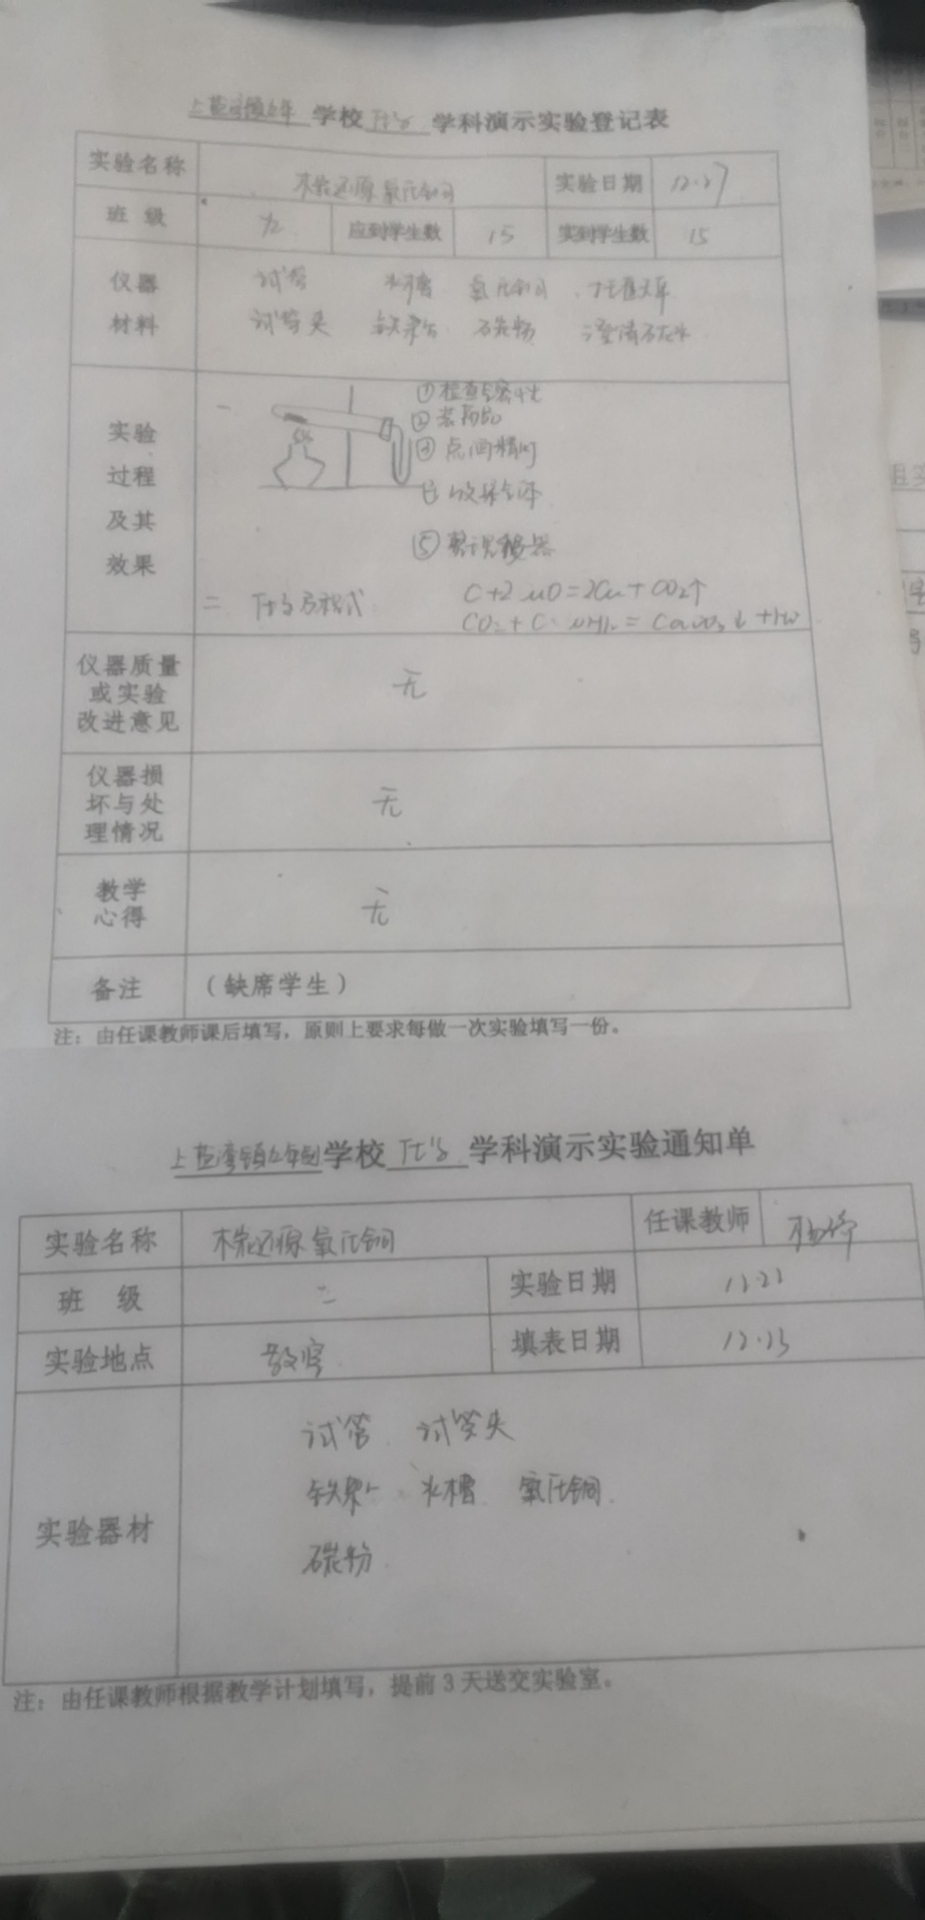 学校 化学 学科演示实验登记表
实验名称 木炭还原氧化铜 实验日期 12.27
班 级 九 应到学生数 15 实到学生数 15
仪器 材料
试管 水槽 氧化铜
试管夹 铁架台 碳粉 澄清石灰水
实验 过程 及其 效果
一
①检查气密性
②装药品
③点燃酒精灯
收集气体
⑤整理仪器
二 化学方程式 C+2 uO=2Cu+CO₂↑
CO₂+C
仪器质量
或实验
改进意见
无
仪器损
坏与处
理情况
无
教学
心得
无
备注 （缺席学生）
注：由任课教师课后填写，原则上要求每做一次实验填写一份。
学校 化学 学科演示实验通知单
实验名称 木炭还原氧化铜 任课教师
班 级 二 实验日期
实验地点 教室 填表日期 12.23
实验器材
试管 试管夹
铁架台 水槽 氧化铜
碳粉
注：由任课教师根据教学计划填写，提前 3 天送交实验室。